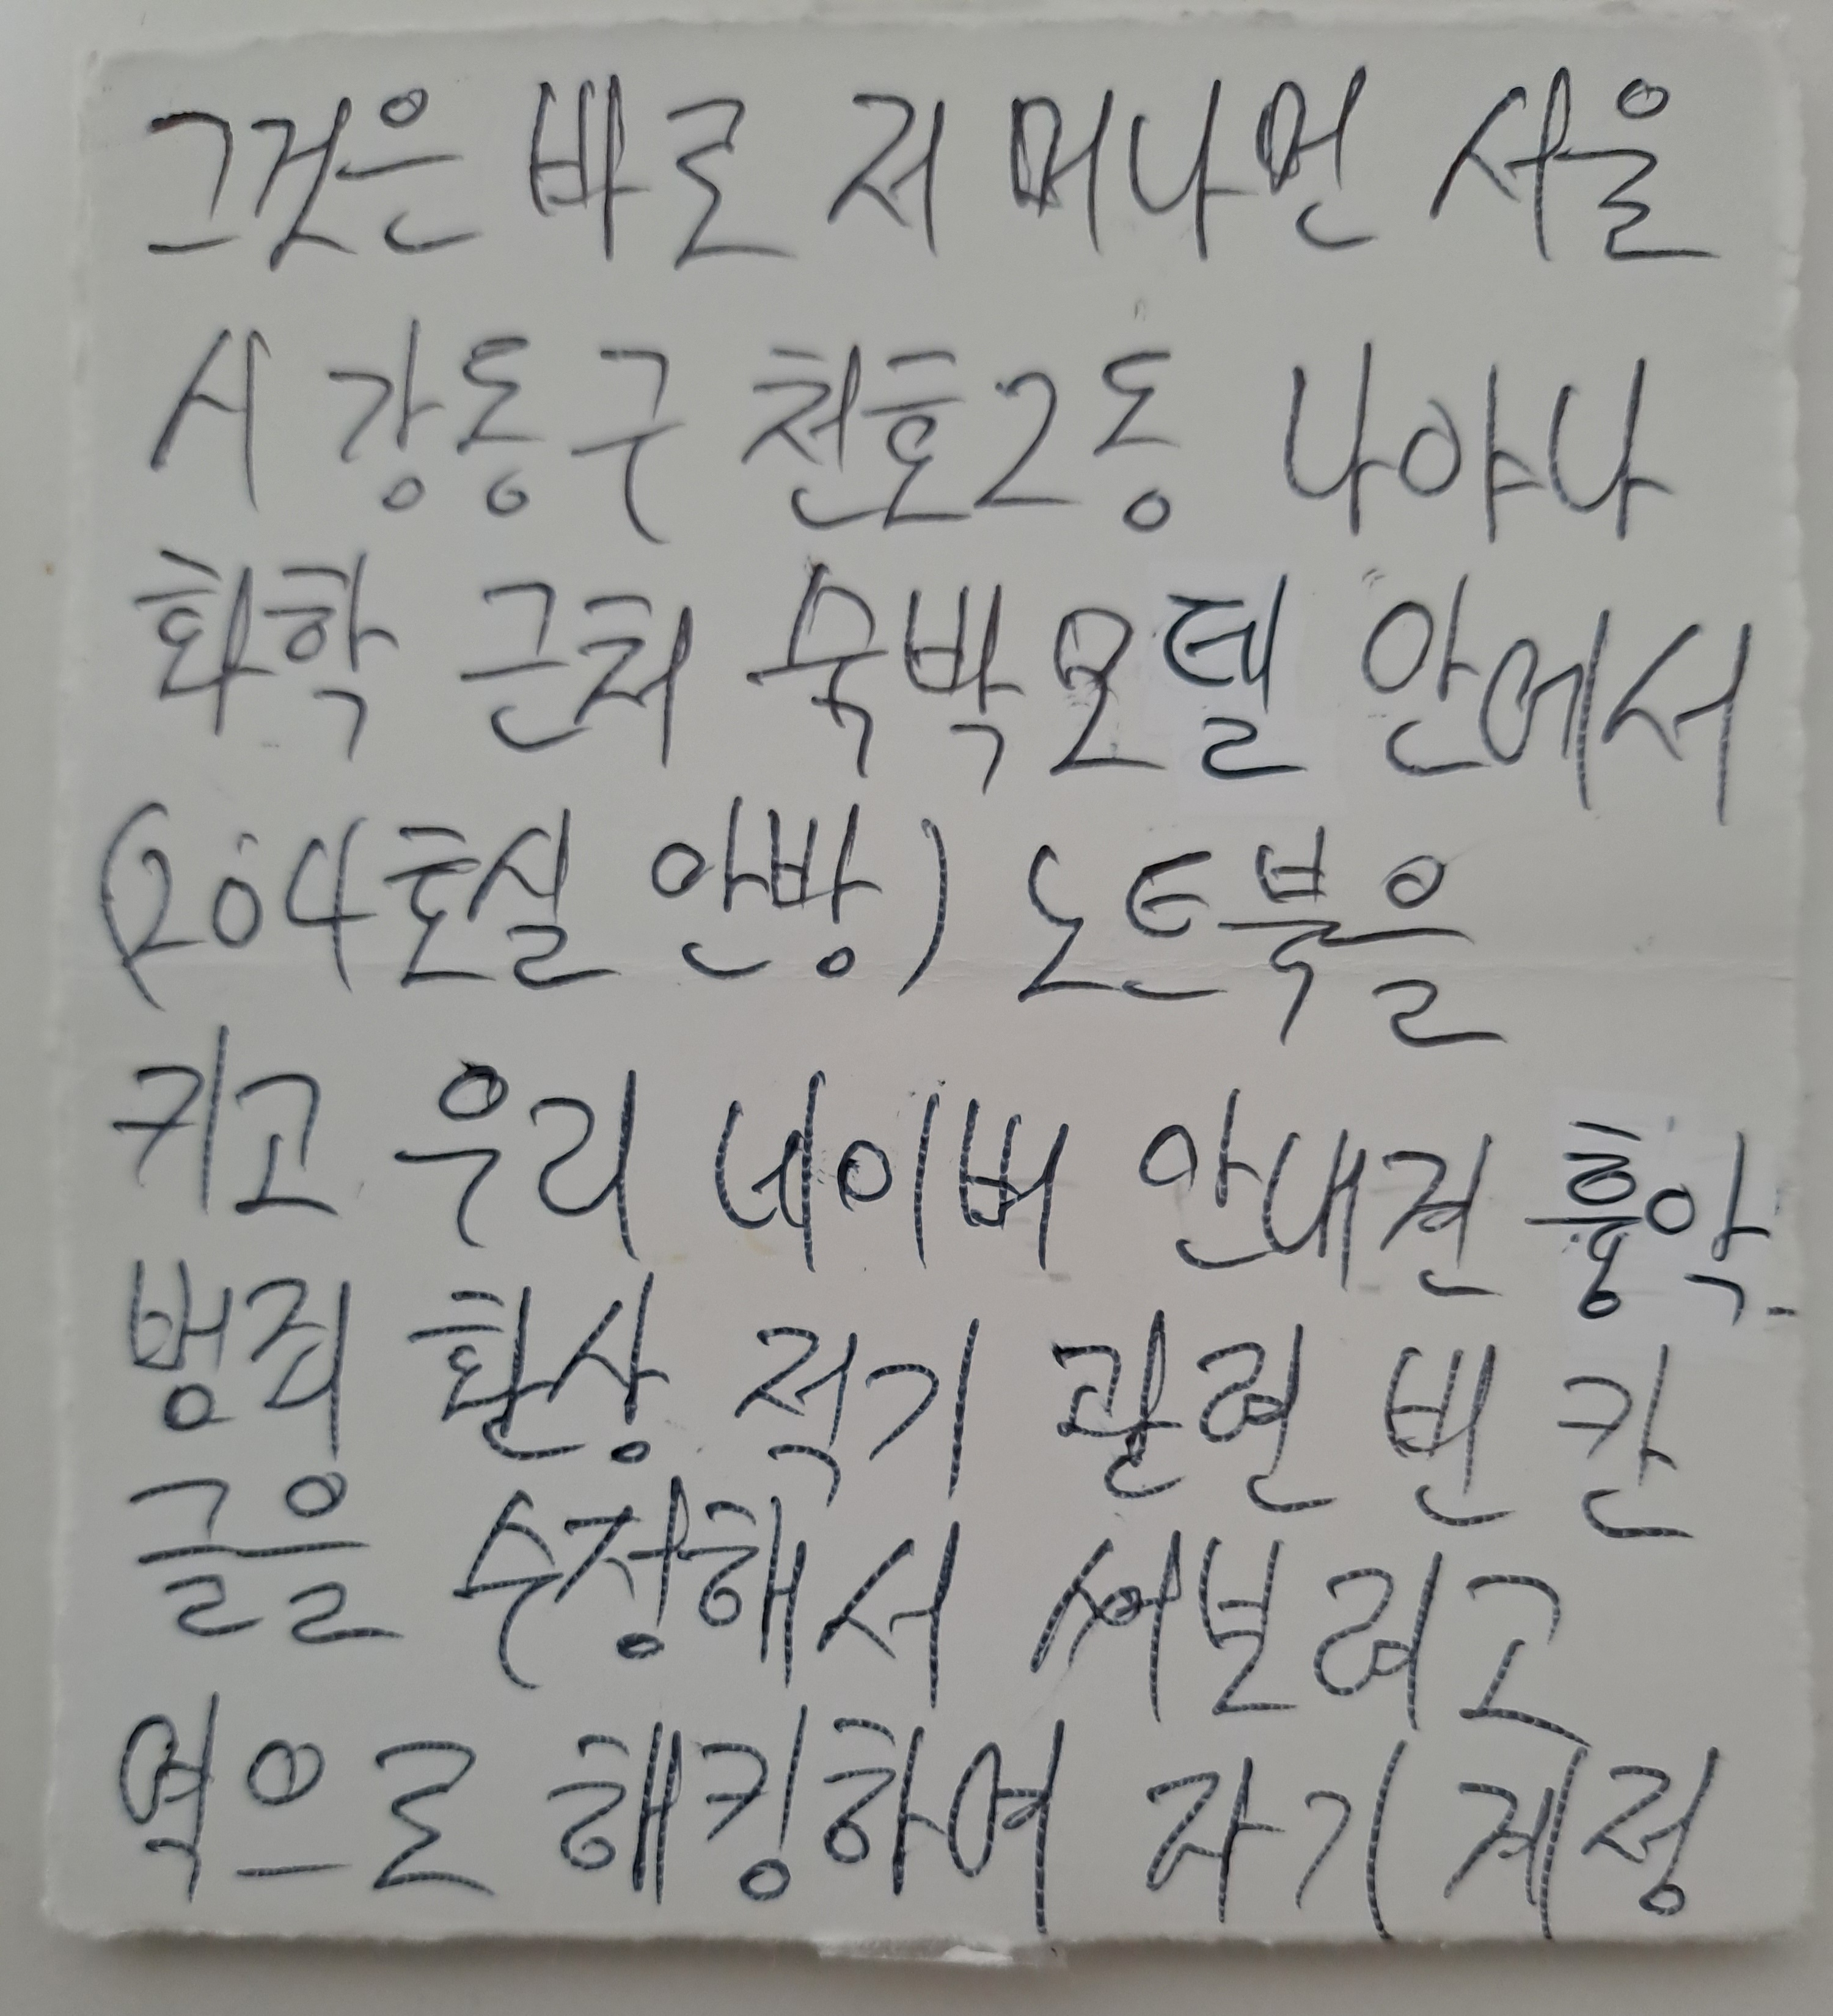 그것은 바로 저 머나먼 서울
시 강동구 천호2동 나야나
화학 근처 숙박모텔 안에서
(204호실 안방) 노트북을
키고 우리 네이버 안내견 흉악
범죄 환상 적기 관련 빈 칸
글을 수정해서 써보려고
역으로 해킹하여 자기 계정